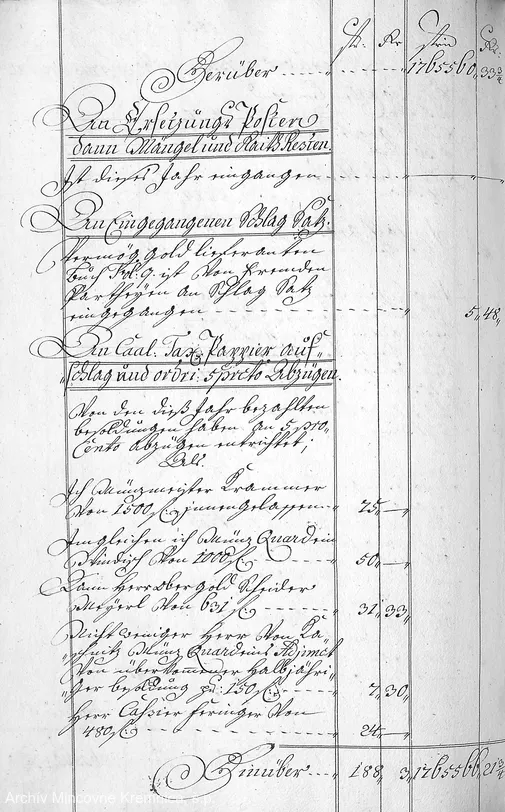 fl: Kr fl: Kr:
Herüber 1765560 33 3/4
An Ersetzungs Posten
dann Mängel und Raitt Resten.
Ist dieses Jahr eingangen
An Eingegangenen Schlag Satz.
Vermög Gold lieferanten
Buch Fol: 9. ist von frembden
Partheyen an Schlag Satz
eingegangen 5 48
An Caal. Tax, Pappier auf-
schlag und ordri: 5 prcto Abzügen.
Von den diß Jahr bezahlten
besoldungen haben an 5 pro
Cento Abzügen entrichtet;
Als.
Ich Münzmeister Krammer
von 1500 fl: innen gelassen 75
Imgleichen ich Münz Quardein
Windisch von 1000 fl: 50
Dann Herr Ober Gold Scheider
Meyerl von 631 fl: 31 33
Nicht weniger Herr von
Münz Quardeins Adjunct
von überkommener Halbjähri-
ger besoldung pr: 150 fl: 7 30
Herr Cassier Feringer von
480 fl: 24
Hinüber 188 3 1765566 21 3/4
Archiv Mincovne Kremnica, š.p.